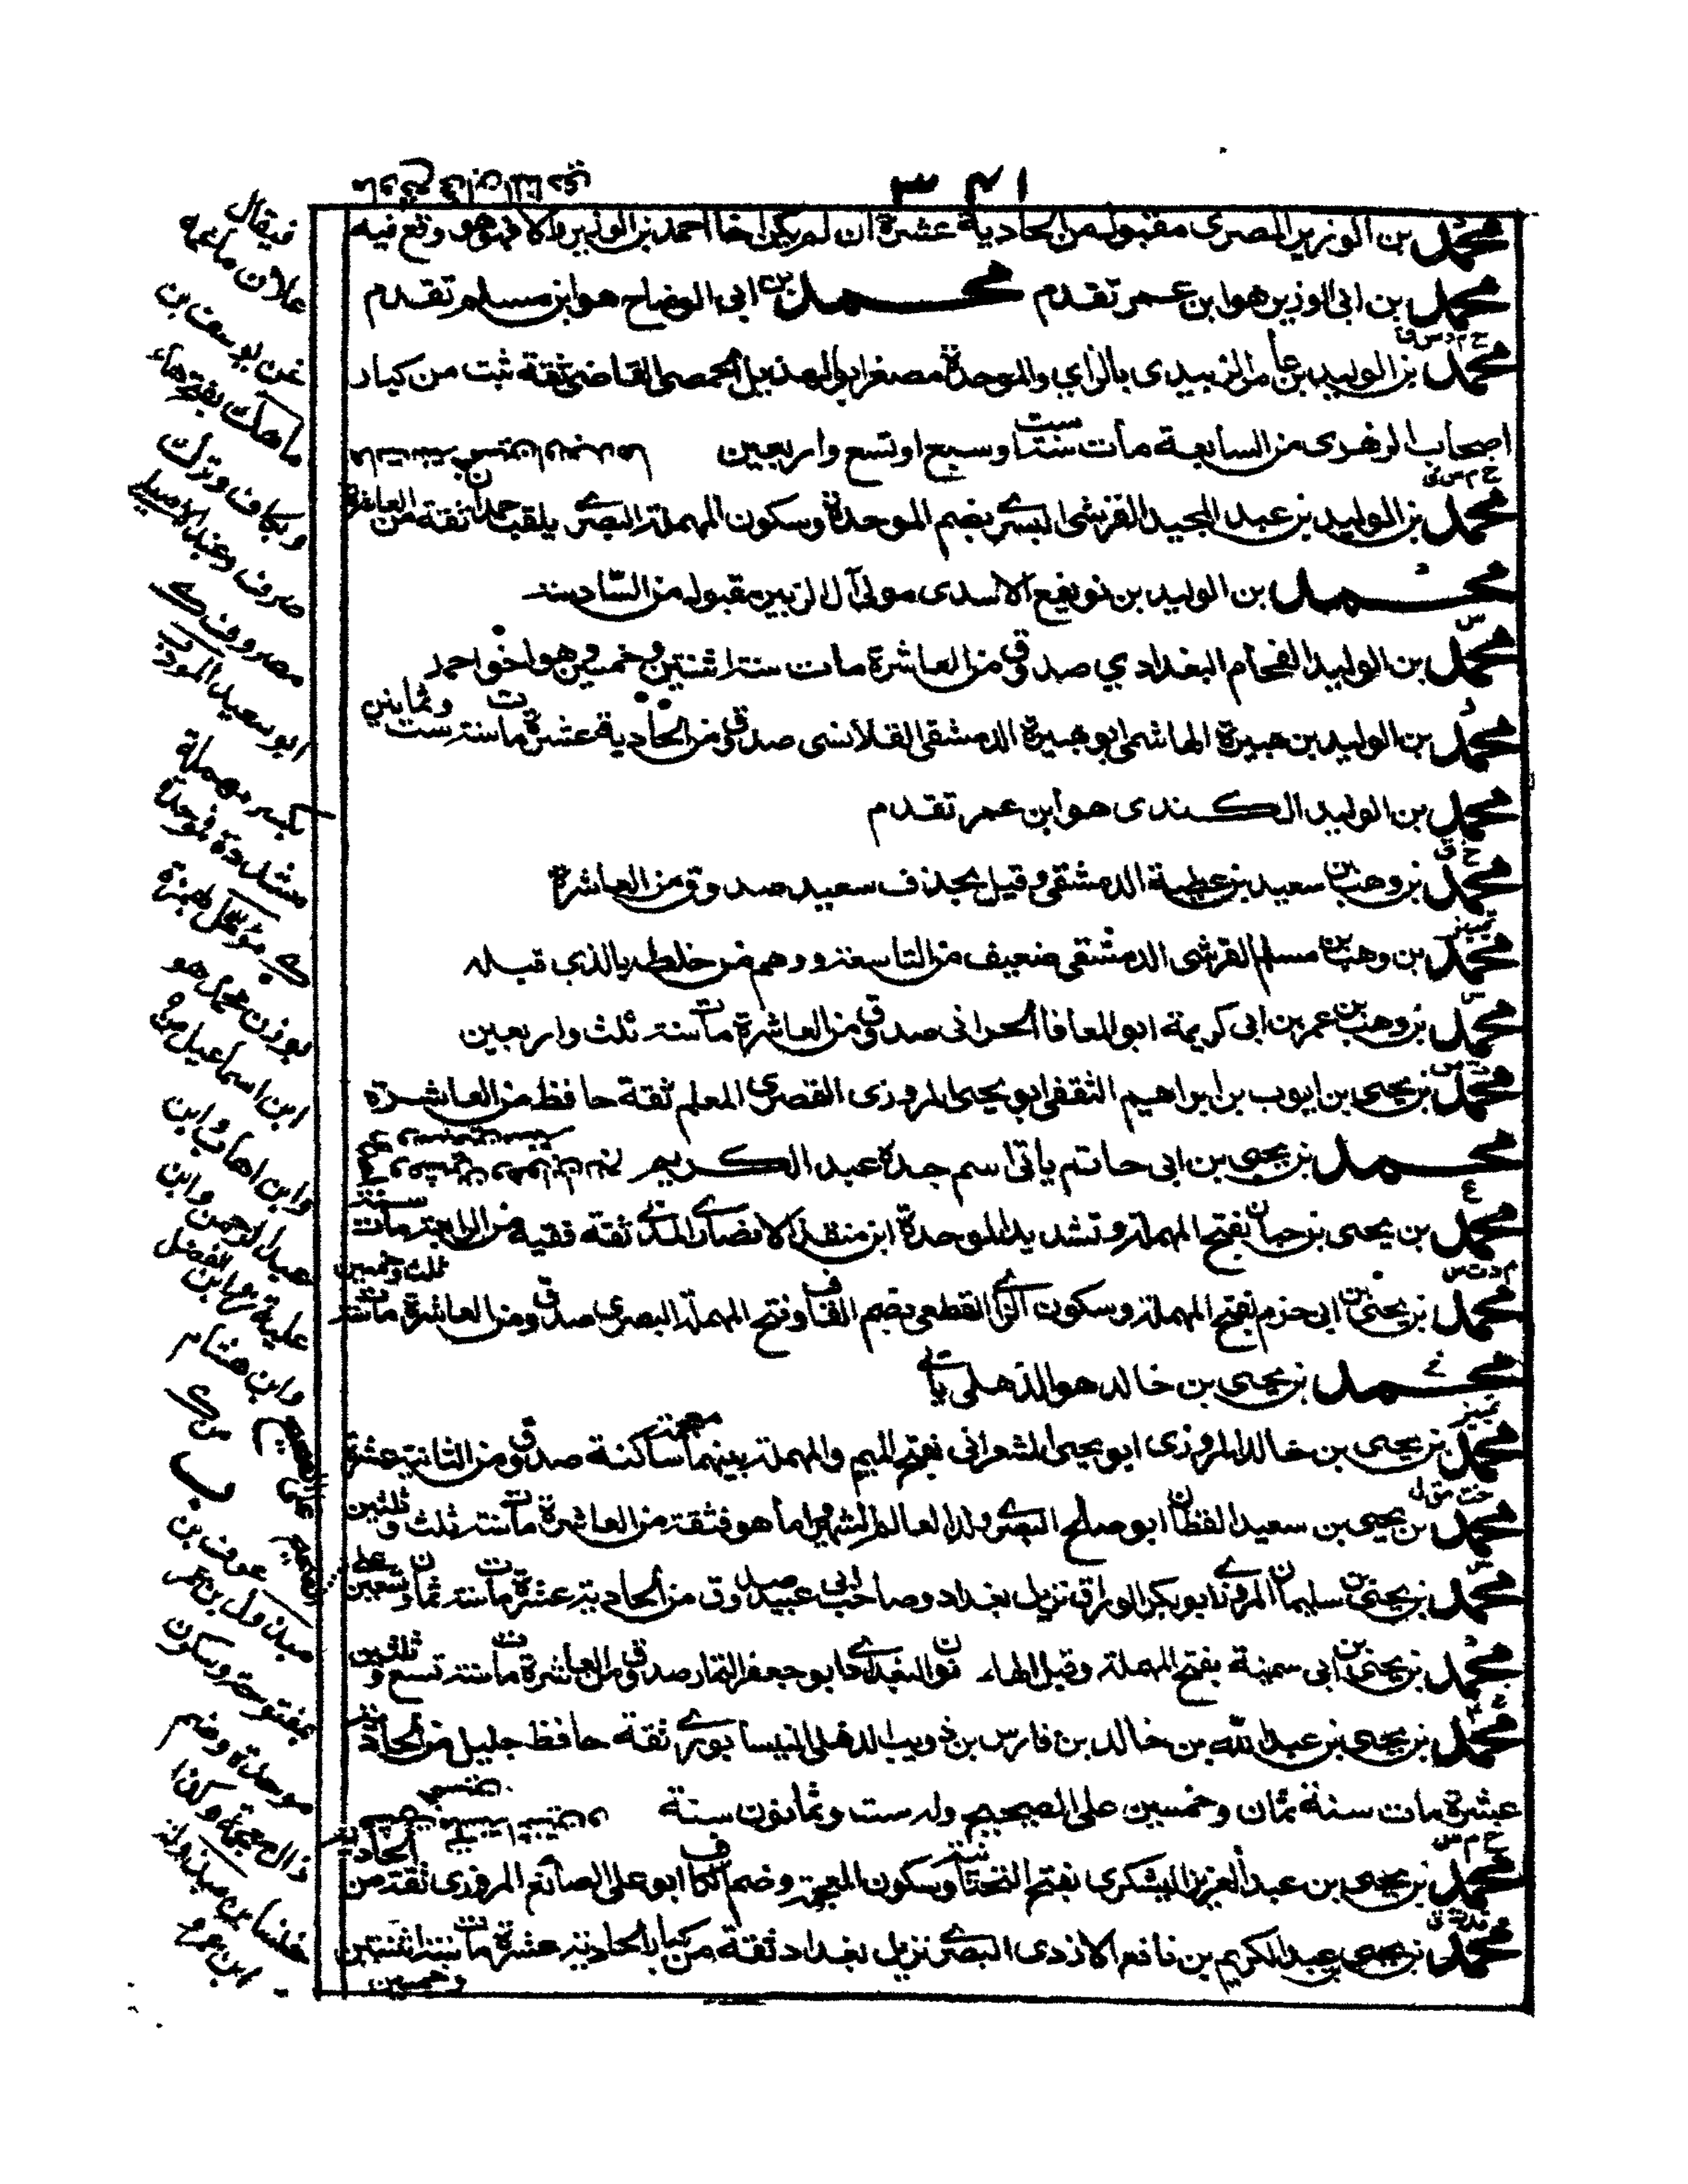 ٣٤١
محمد بن الوزير المصرى مقبول من الحادية عشرة ان لم يكن اخا احمد بن الوزير والا فهو هو وقع فيه
محمد بن ابى الوزير هو ابن عمر تقدم محمد بن ابى الوضاح هو ابن مسلم تقدم
خ م د س ق
محمد بن الوليد بن عامر الزبيدى بالزاي والموحدة مصغر ابو الهذيل الحمصى القاضى ثقة ثبت من كبار
اصحاب الزهرى من السابعة مات سنة ست او سبع او تسع واربعين
خ م س ق
محمد بن الوليد بن عبد المجيد القرشى البسرى بضم الموحدة وسكون المهملة البصرى يلقب حمدان ثقة من العاشرة
محمد بن الوليد بن نويفع الاسدى مولى آل الزبير مقبول من السادسة
س
محمد بن الوليد الفحام البغدادي صدوق من العاشرة مات سنة اثنتين وخمسين وهو اخو احمد
د
محمد بن الوليد بن هبيرة الهاشمى ابو هبيرة الدمشقى القلانسى صدوق من الحادية عشرة مات سنة ست وثمانين
محمد بن الوليد الكندى هو ابن عمر تقدم
محمد بن وهب بن سعيد بن عطية الدمشقى وقيل بحذف سعيد صدوق من العاشرة
تمييز
محمد بن وهب بن مسلم القرشى الدمشقى ضعيف من التاسعة ووهم من خلطه بالذى قبله
س
محمد بن وهب بن عمر بن ابى كريمة ابو المعافا الحرانى صدوق من العاشرة مات سنة ثلث واربعين
محمد بن يحيى بن ايوب بن ابراهيم الثقفى ابو يحيى المروزى القصرى المعلم ثقة حافظ من العاشرة
محمد بن يحيى بن ابى حاتم ياتى اسم جده عبد الكريم
ع
محمد بن يحيى بن حبان بفتح المهملة وتشديد الموحدة ابن منقذ الانصارى المدنى ثقة فقيه من الرابعة مات سنة
م د ت س
محمد بن يحيى بن ابى حزم بفتح المهملة وسكون الزاى القطعى بضم القاف وفتح المهملة البصرى صدوق من العاشرة مات سنة ثلث وخمسين
محمد بن يحيى بن خالد هو الذهلى ياتى
تمييز
محمد بن يحيى بن خالد المروزى ابو يحيى المشعرانى بفتح الميم والمهملة بينهما معجمة ساكنة صدوق من الثانية عشرة
محمد بن يحيى بن سعيد القطان ابو صالح البصرى ولد العالم الشهير اما هو فثقة من العاشرة مات سنة ثلث وثلثين
س
محمد بن يحيى بن سليمان المروزى ابو بكر الوراق نزيل بغداد وصاحب ابى عبيد صدوق من الحادية عشرة مات سنة ثمان وتسعين
محمد بن يحيى بن ابى سمينة بفتح المهملة وقبل الهاء نون البغدادى ابو جعفر التمار صدوق من العاشرة مات سنة تسع وثلثين
محمد بن يحيى بن عبد الله بن خالد بن فارس بن ذويب الذهلى النيسابورى ثقة حافظ جليل من الحادية
عشرة مات سنة ثمان وخمسين على الصحيح وله ست وثمانون سنة
خ م س
محمد بن يحيى بن عبد العزيز اليشكرى بفتح التحتانية وسكون المعجمة وضم الكاف ابو على الصائغ المروزى ثقة من الحادية
محمد بن يحيى بن عبد الكريم بن نافع الازدى البصرى نزيل بغداد ثقة من كبار الحادية عشرة مات سنة اثنتين
وخمسين
فيقال
علان ما غمه
عن يوسف بن
ماهك بفتح هاء
وبكاف وترك
صرف وعند الاصيلي
مصروف ك
ابو سعيد المؤذن
بكسر مهملة
مشددة فموحدة
ك مؤمل بهمزة
بوزن محمد هو
ابن اسماعيل من
وابن اهاب وابن
عبد الرحمن وابن
علية وابن الفضل
وابن هشام
من ك
ب
عوف بن
مبذول بن عمر
بمفتوحة وسكون
موحدة وضم
ذال معجمة وكذا
خنساء بن مبذول
ابن عمرو